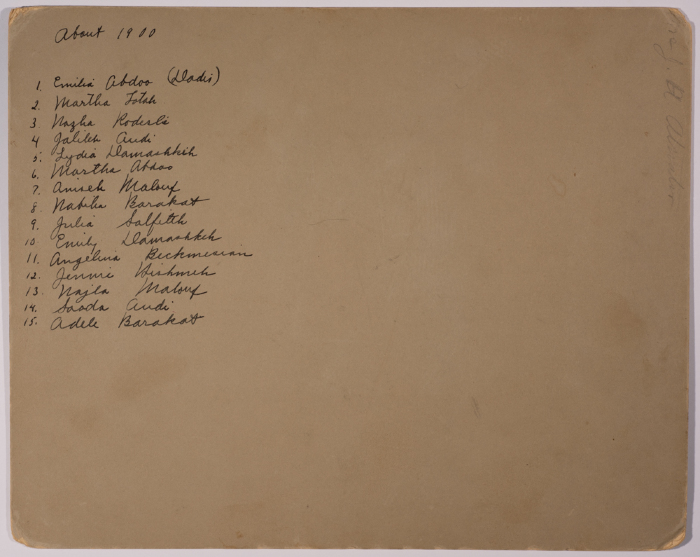 About 1900
1. Emilia Abdoo (Dadis)
2. Martha Totah
3 Nazha Kodesli
4 Jalileh Audi
5. Lydia Damashkieh
6. Martha Abdoo
7. Aniseh Malouf
8. Nabiha Barakat
9. Julia Salfiteh
10 Emily Damashkeh
11. Angelina Beckmesian
12. Jennie Hishmeh
13. Najla Malouf
14. Saoda Audi
15. Adele Barakat